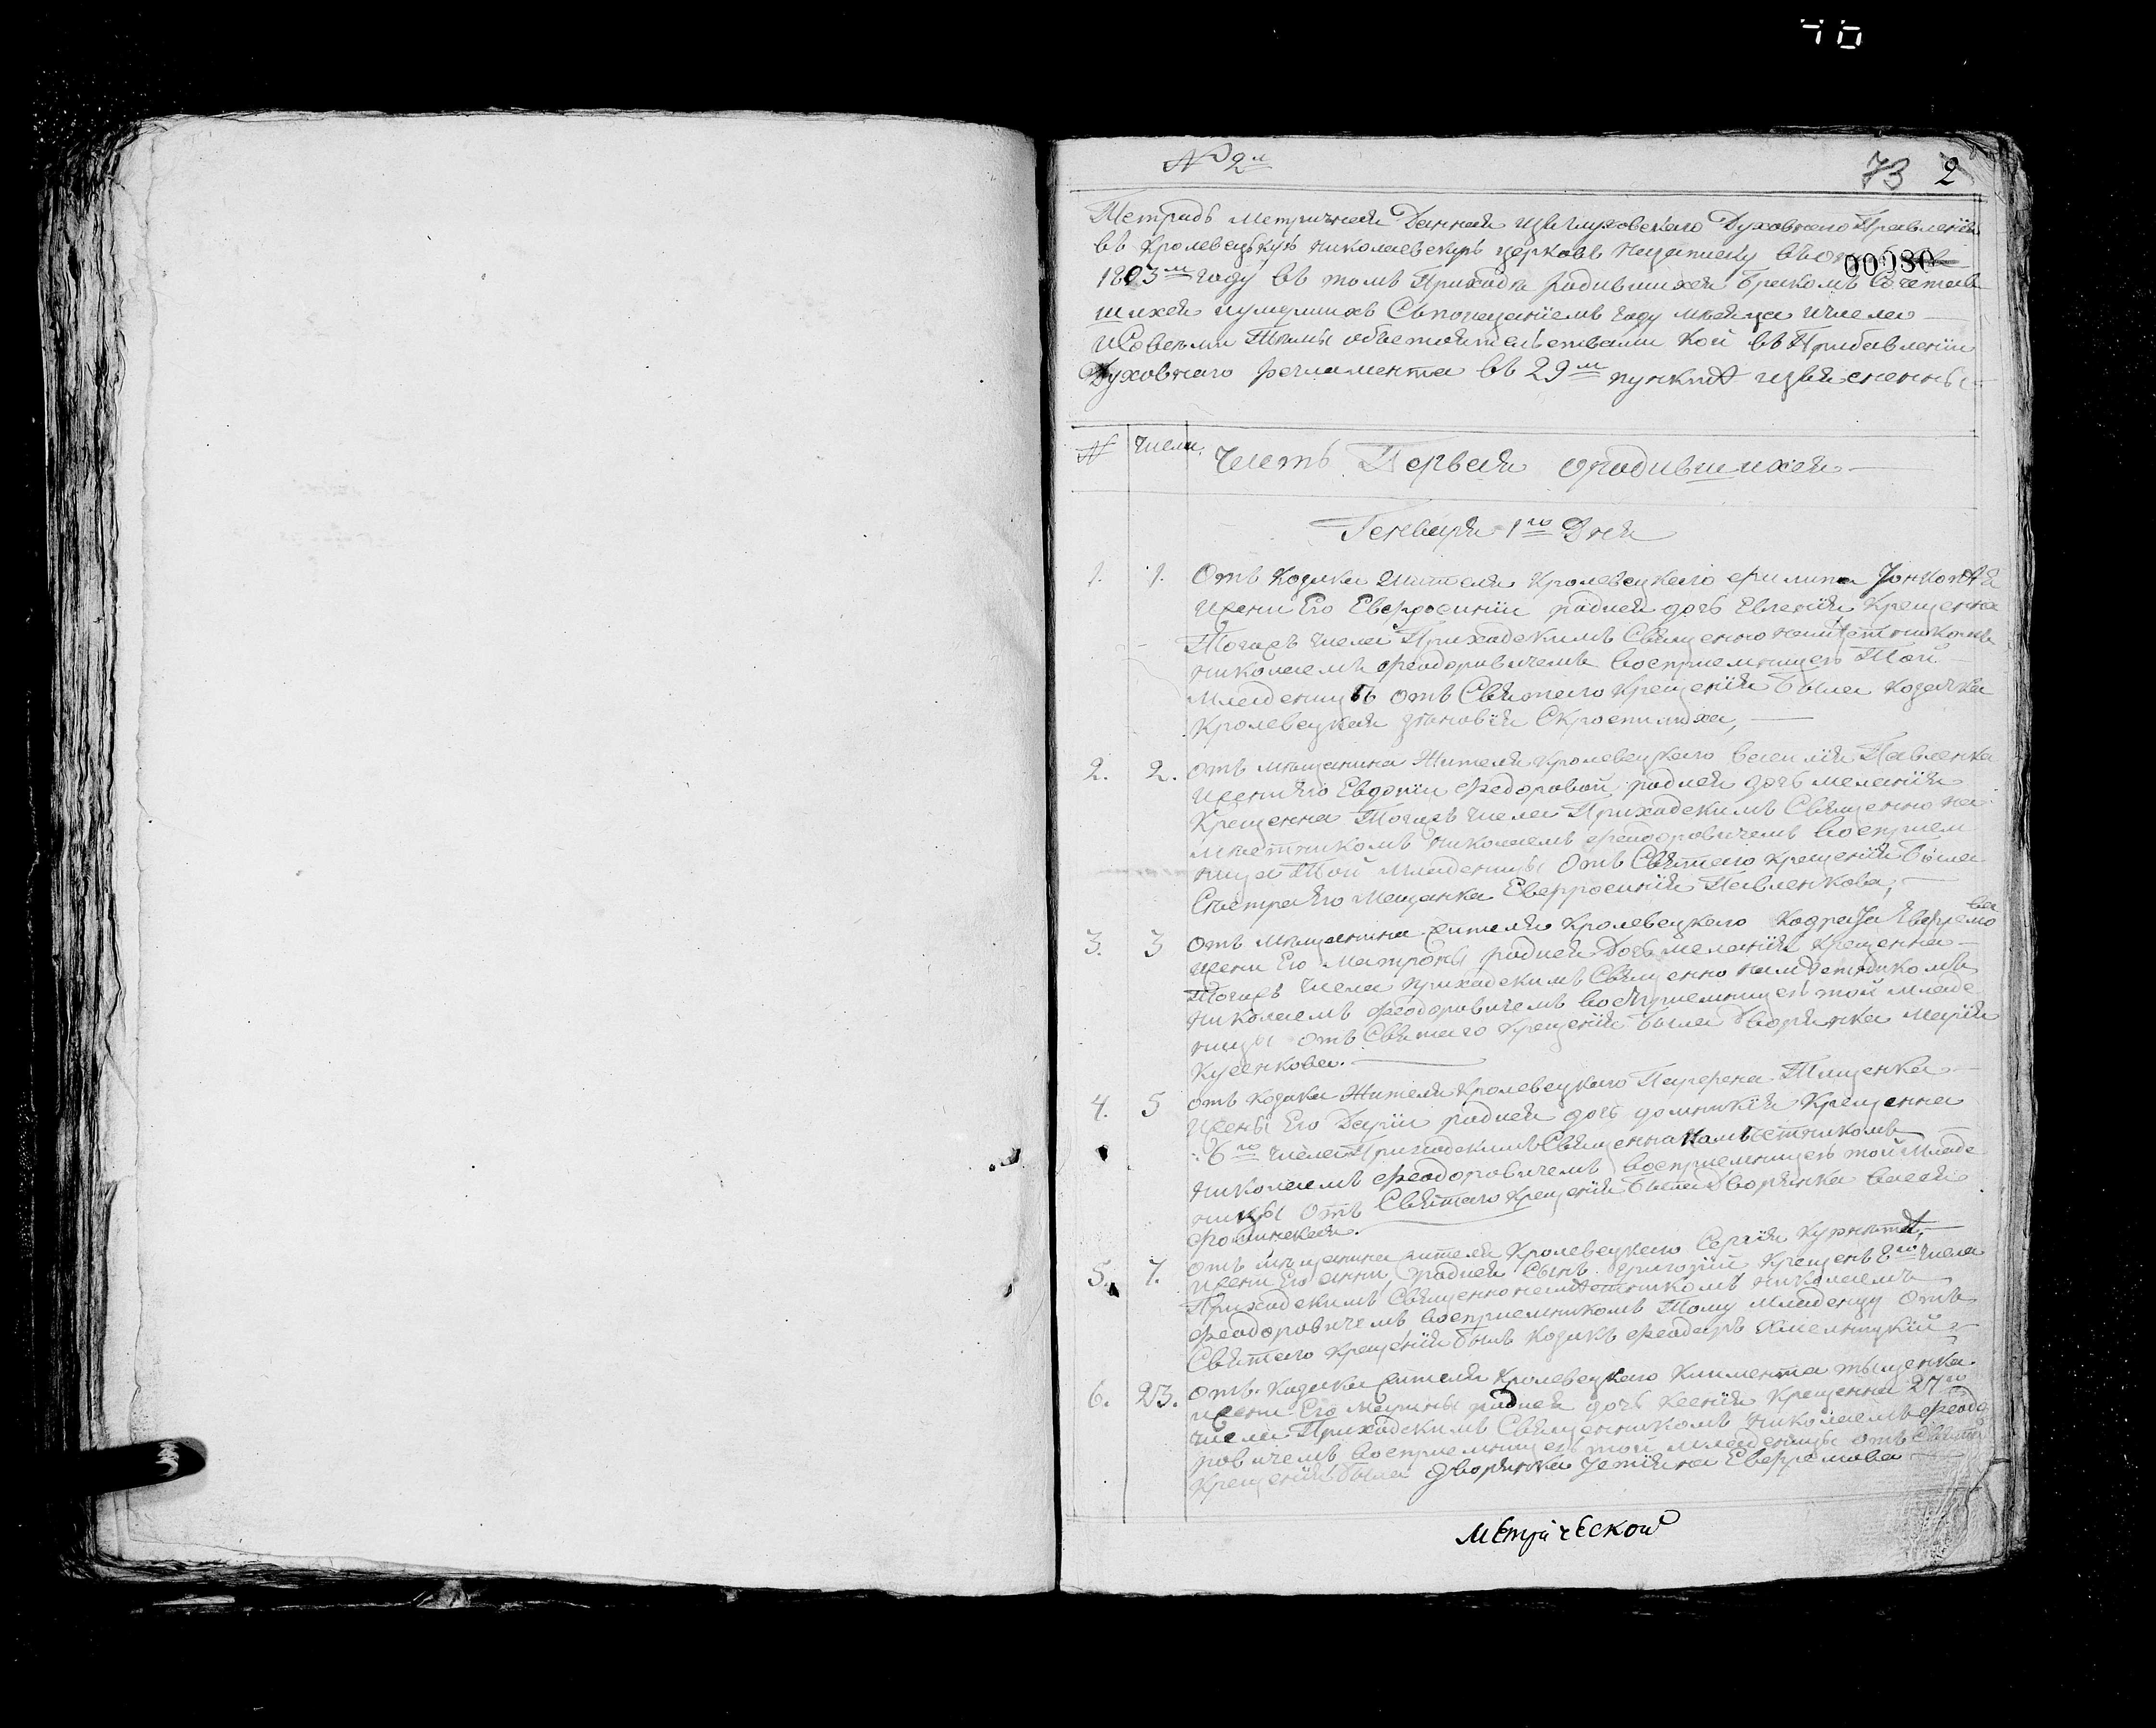 № 2й
73 2
Тетрадь Метричная Данная изъ Глуховского Духовного Правления
въ Кролевецькую николаевскую церковь на записку въ
00080
1803м году въ томъ Приходе родившихся Бракомъ Сочетав
шихся иумершихъ Съпоказаниемъ году месяца ичисла
исовсеми Темы обьстоятельствами кои въ Прибавлении
Духовнаго регламента въ 29м пункте изъясненны
№ числа Часть Первая ородившихся
Генваря 1го Дня
1. 1. Отъ козака Жителя Кролевецкаго филипа
жени Его Евфросинии родися дочь Евгения Крещенна
Тогожъ числа Приходскимъ Священно наместникомъ
николаемъ феодоровичемъ восприемницею Той
младеницы отъ Святаго Крещения Была козачка
Кролевецкая
2. 2. отъ мещанина Жителя Кролевецкаго василия Павленка
жени его Евдокии федоровой родися дочь мелания
Крещенна Тогожъ числа Приходскимъ Священно на
местникомъ николаемъ феодоровичемъ восприем
ница Той Младеницы Отъ Святаго Крещения Была
Сестра его Мещанка Евфросиния Павленкова,
3. 3 отъ мещанина жителя Кролевецкаго Кодрата Евфремо
ва
жени Его Матроны родися Дочь мелания Крещенна
Тогожъ числа приходскимъ Священно наместникомъ
николаемъ феодоровичемъ восприемницею той младе
ницы отъ Святаго Крещения Была Дворянка Мария
Кусенкова.
4. 5 отъ козака Жителя Кролевецкаго Парфена Тищенка
жены Его Дарии родися дочь домникия Крещенна
6го числа Приходскимъ Священно наместникомъ
николаемъ феодоровичемъ восприемницею той младе
ницы отъ Святаго Крещения была Дворянка
5. 7. отъ мещанина жителя Кролевецкаго Сергия
жени Его анни родися Сынъ григорий Крещенъ 8го числа
Приходскимъ Священно наместникомъ николаемъ
феодоровичемъ восприемникомъ Тому Младенцу Отъ
Святаго Крещения былъ козакъ феодоръ Хмелницкий
6. 23. отъ козака жителя Кролевецкаго Климента тищенка
жени Его марины родися дочь ксения Крещенна 27го
числа Приходскимъ Священникомъ Николаемъ феодо
ровичемъ восприемницею той младеницы отъ Святаго
Крещения была дворянка Евфремова
метрической